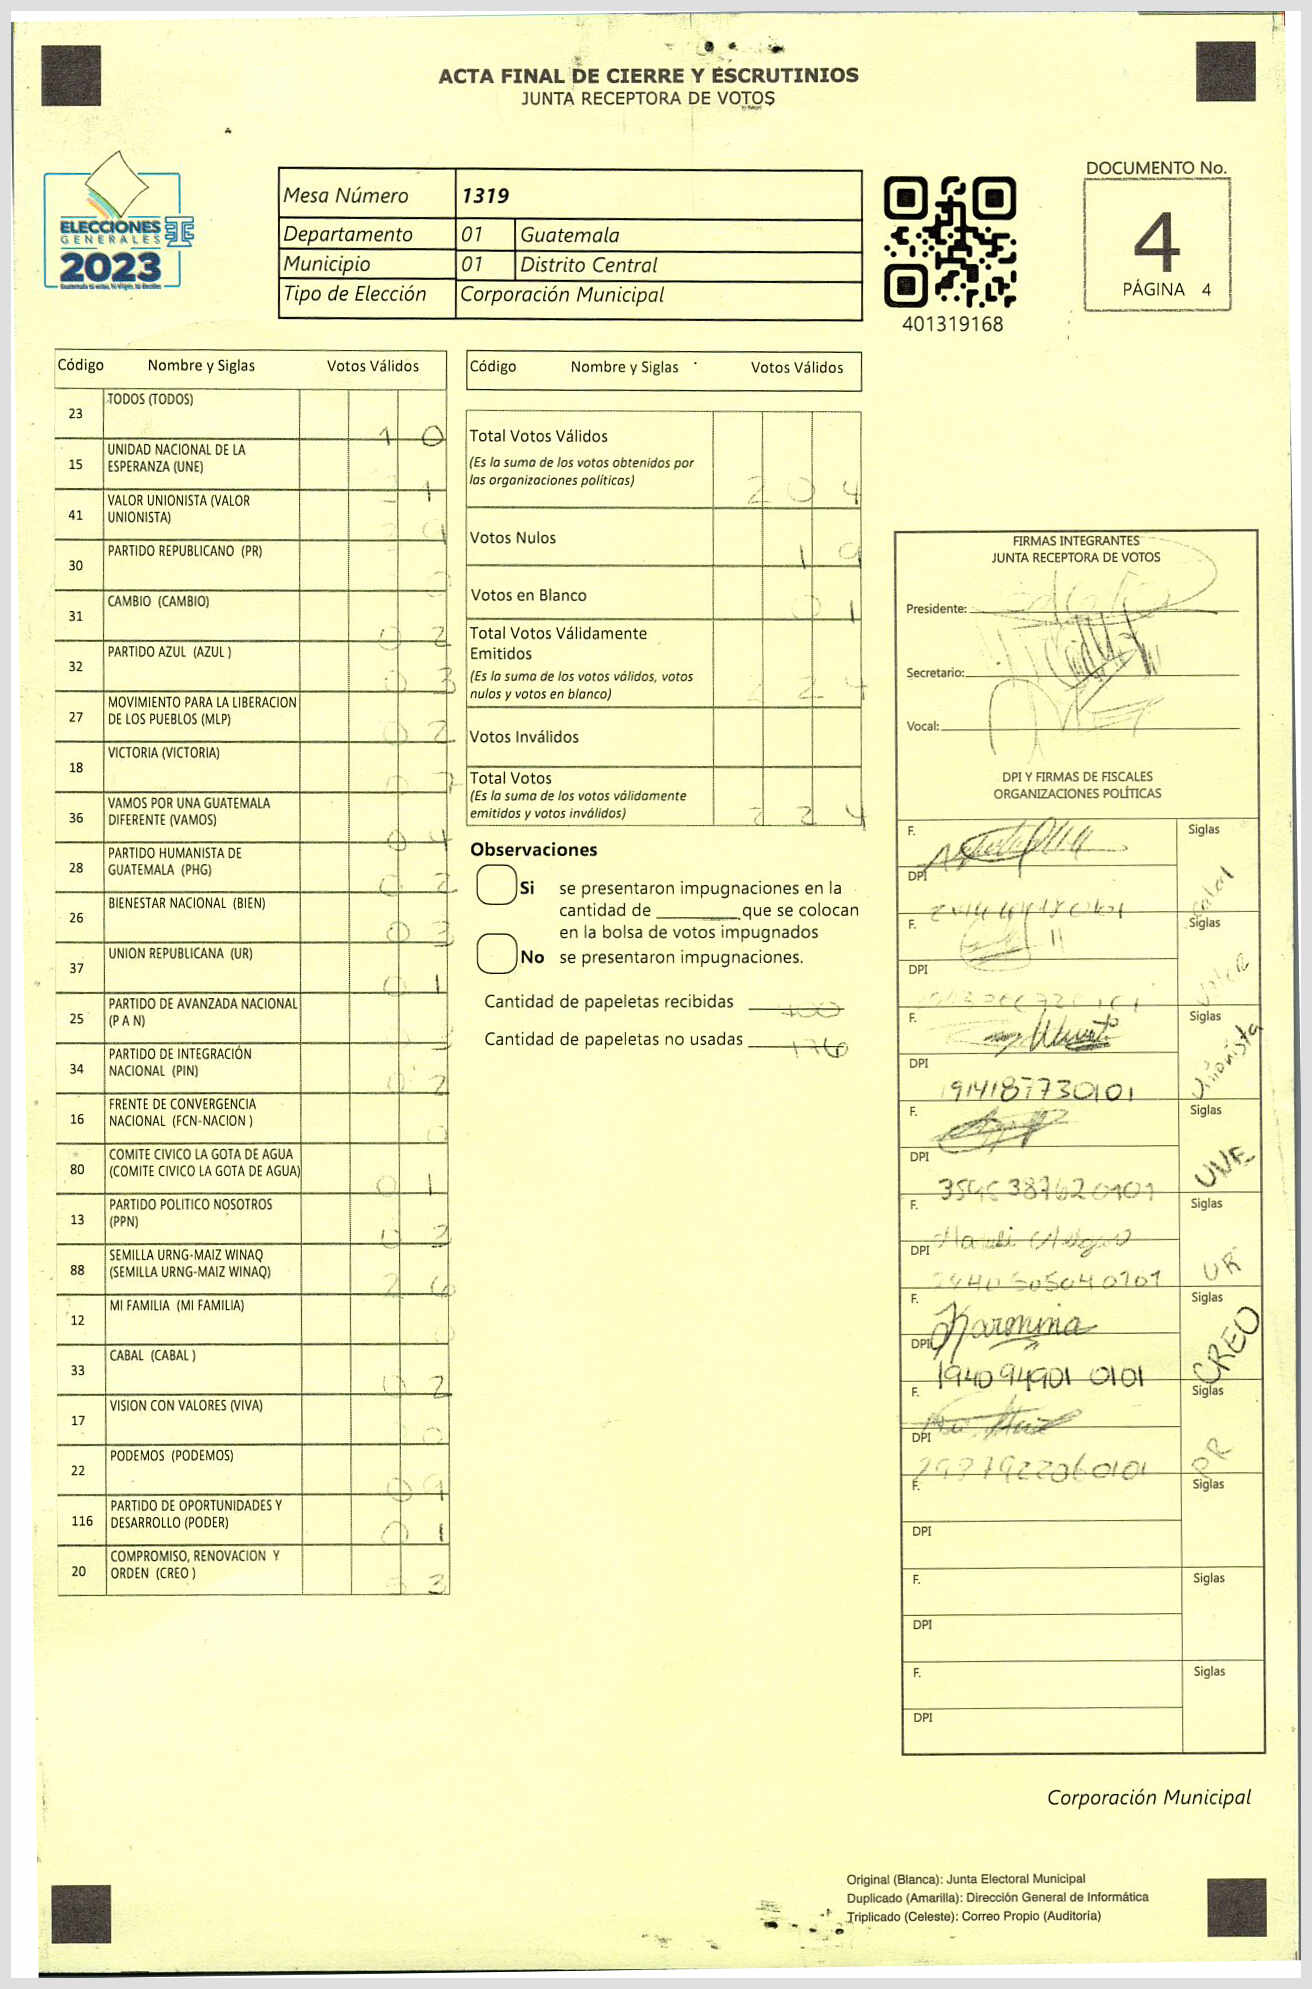 ACTA FINAL DE CIERRE Y ESCRUTINIOS
JUNTA RECEPTORA DE VOTOS
ELECCIONES
GENERALES
2023
Mesa Número 1319
Departamento 01 Guatemala
Municipio 01 Distrito Central
Tipo de Elección Corporación Municipal
401319168
DOCUMENTO No.
4
PÁGINA 4
Código Nombre y Siglas Votos Válidos
23 TODOS (TODOS) 1 0
15 UNIDAD NACIONAL DE LA
ESPERANZA (UNE) 1
41 VALOR UNIONISTA (VALOR
UNIONISTA) 9
30 PARTIDO REPUBLICANO (PR)
31 CAMBIO (CAMBIO) 0 2
32 PARTIDO AZUL (AZUL ) 0 3
27 MOVIMIENTO PARA LA LIBERACION
DE LOS PUEBLOS (MLP) 0 2
18 VICTORIA (VICTORIA) 0 7
36 VAMOS POR UNA GUATEMALA
DIFERENTE (VAMOS) 0 4
28 PARTIDO HUMANISTA DE
GUATEMALA (PHG) 0 2
26 BIENESTAR NACIONAL (BIEN) 0 3
37 UNION REPUBLICANA (UR) 0 1
25 PARTIDO DE AVANZADA NACIONAL
(P A N)
34 PARTIDO DE INTEGRACIÓN
NACIONAL (PIN) 0 2
16 FRENTE DE CONVERGENCIA
NACIONAL (FCN-NACION ) 0
80 COMITE CIVICO LA GOTA DE AGUA
(COMITE CIVICO LA GOTA DE AGUA) 0 1
13 PARTIDO POLITICO NOSOTROS
(PPN) 0 2
88 SEMILLA URNG-MAIZ WINAQ
(SEMILLA URNG-MAIZ WINAQ) 2 6
12 MI FAMILIA (MI FAMILIA) 0
33 CABAL (CABAL ) 0 2
17 VISION CON VALORES (VIVA) 0
22 PODEMOS (PODEMOS) 0 9
116 PARTIDO DE OPORTUNIDADES Y
DESARROLLO (PODER) 0 1
20 COMPROMISO, RENOVACION Y
ORDEN (CREO ) 3
Código Nombre y Siglas Votos Válidos
Total Votos Válidos
(Es la suma de los votos obtenidos por
las organizaciones políticas) 2 0 4
Votos Nulos 1 9
Votos en Blanco 0 1
Total Votos Válidamente
Emitidos
(Es la suma de los votos válidos, votos
nulos y votos en blanco) 2 2 4
Votos Inválidos
Total Votos
(Es la suma de los votos válidamente
emitidos y votos inválidos) 2 2 4
Observaciones
Si se presentaron impugnaciones en la
cantidad de ________ que se colocan
en la bolsa de votos impugnados
No se presentaron impugnaciones.
Cantidad de papeletas recibidas 400
Cantidad de papeletas no usadas 176
FIRMAS INTEGRANTES
JUNTA RECEPTORA DE VOTOS
Presidente:
Secretario:
Vocal:
DPI Y FIRMAS DE FISCALES
ORGANIZACIONES POLÍTICAS
F. Siglas
DPI
F. Siglas
DPI
F. Siglas Unionista
DPI 1914187730101
F. Siglas UNE
DPI
F. Siglas UR
DPI
F. Siglas CREO
DPI 1940 94901 0101
F. Siglas PR
DPI
F. Siglas
DPI
F. Siglas
DPI
F. Siglas
DPI
Corporación Municipal
Original (Blanca): Junta Electoral Municipal
Duplicado (Amarilla): Dirección General de Informática
Triplicado (Celeste): Correo Propio (Auditoría)